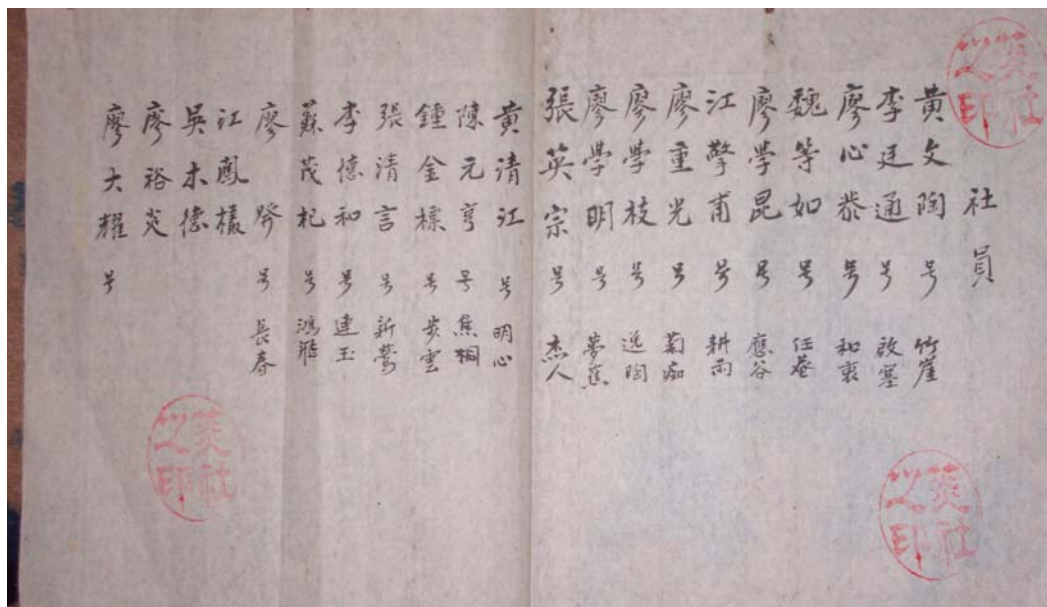 社員
黃文陶 号 竹崖
李廷通 号 啟塞
廖心恭 号 和衷
魏等如 号 任菴
廖學昆 号 應谷
江擎甫 号 耕雨
廖重光 号 菊痴
廖學枝 号 逸陶
廖學明 号 夢蕉
張英宗 号 杰人
黃清江 号 明心
陳元亨 号 焦桐
鍾金標 号 步雲
張清言 号 新鶯
李億和 号 連玉
蘇茂杞 号 鴻飛
廖 号 長春
江鳳
吳木德
廖裕炎
廖大耀 号
社之印
社之印
社之印